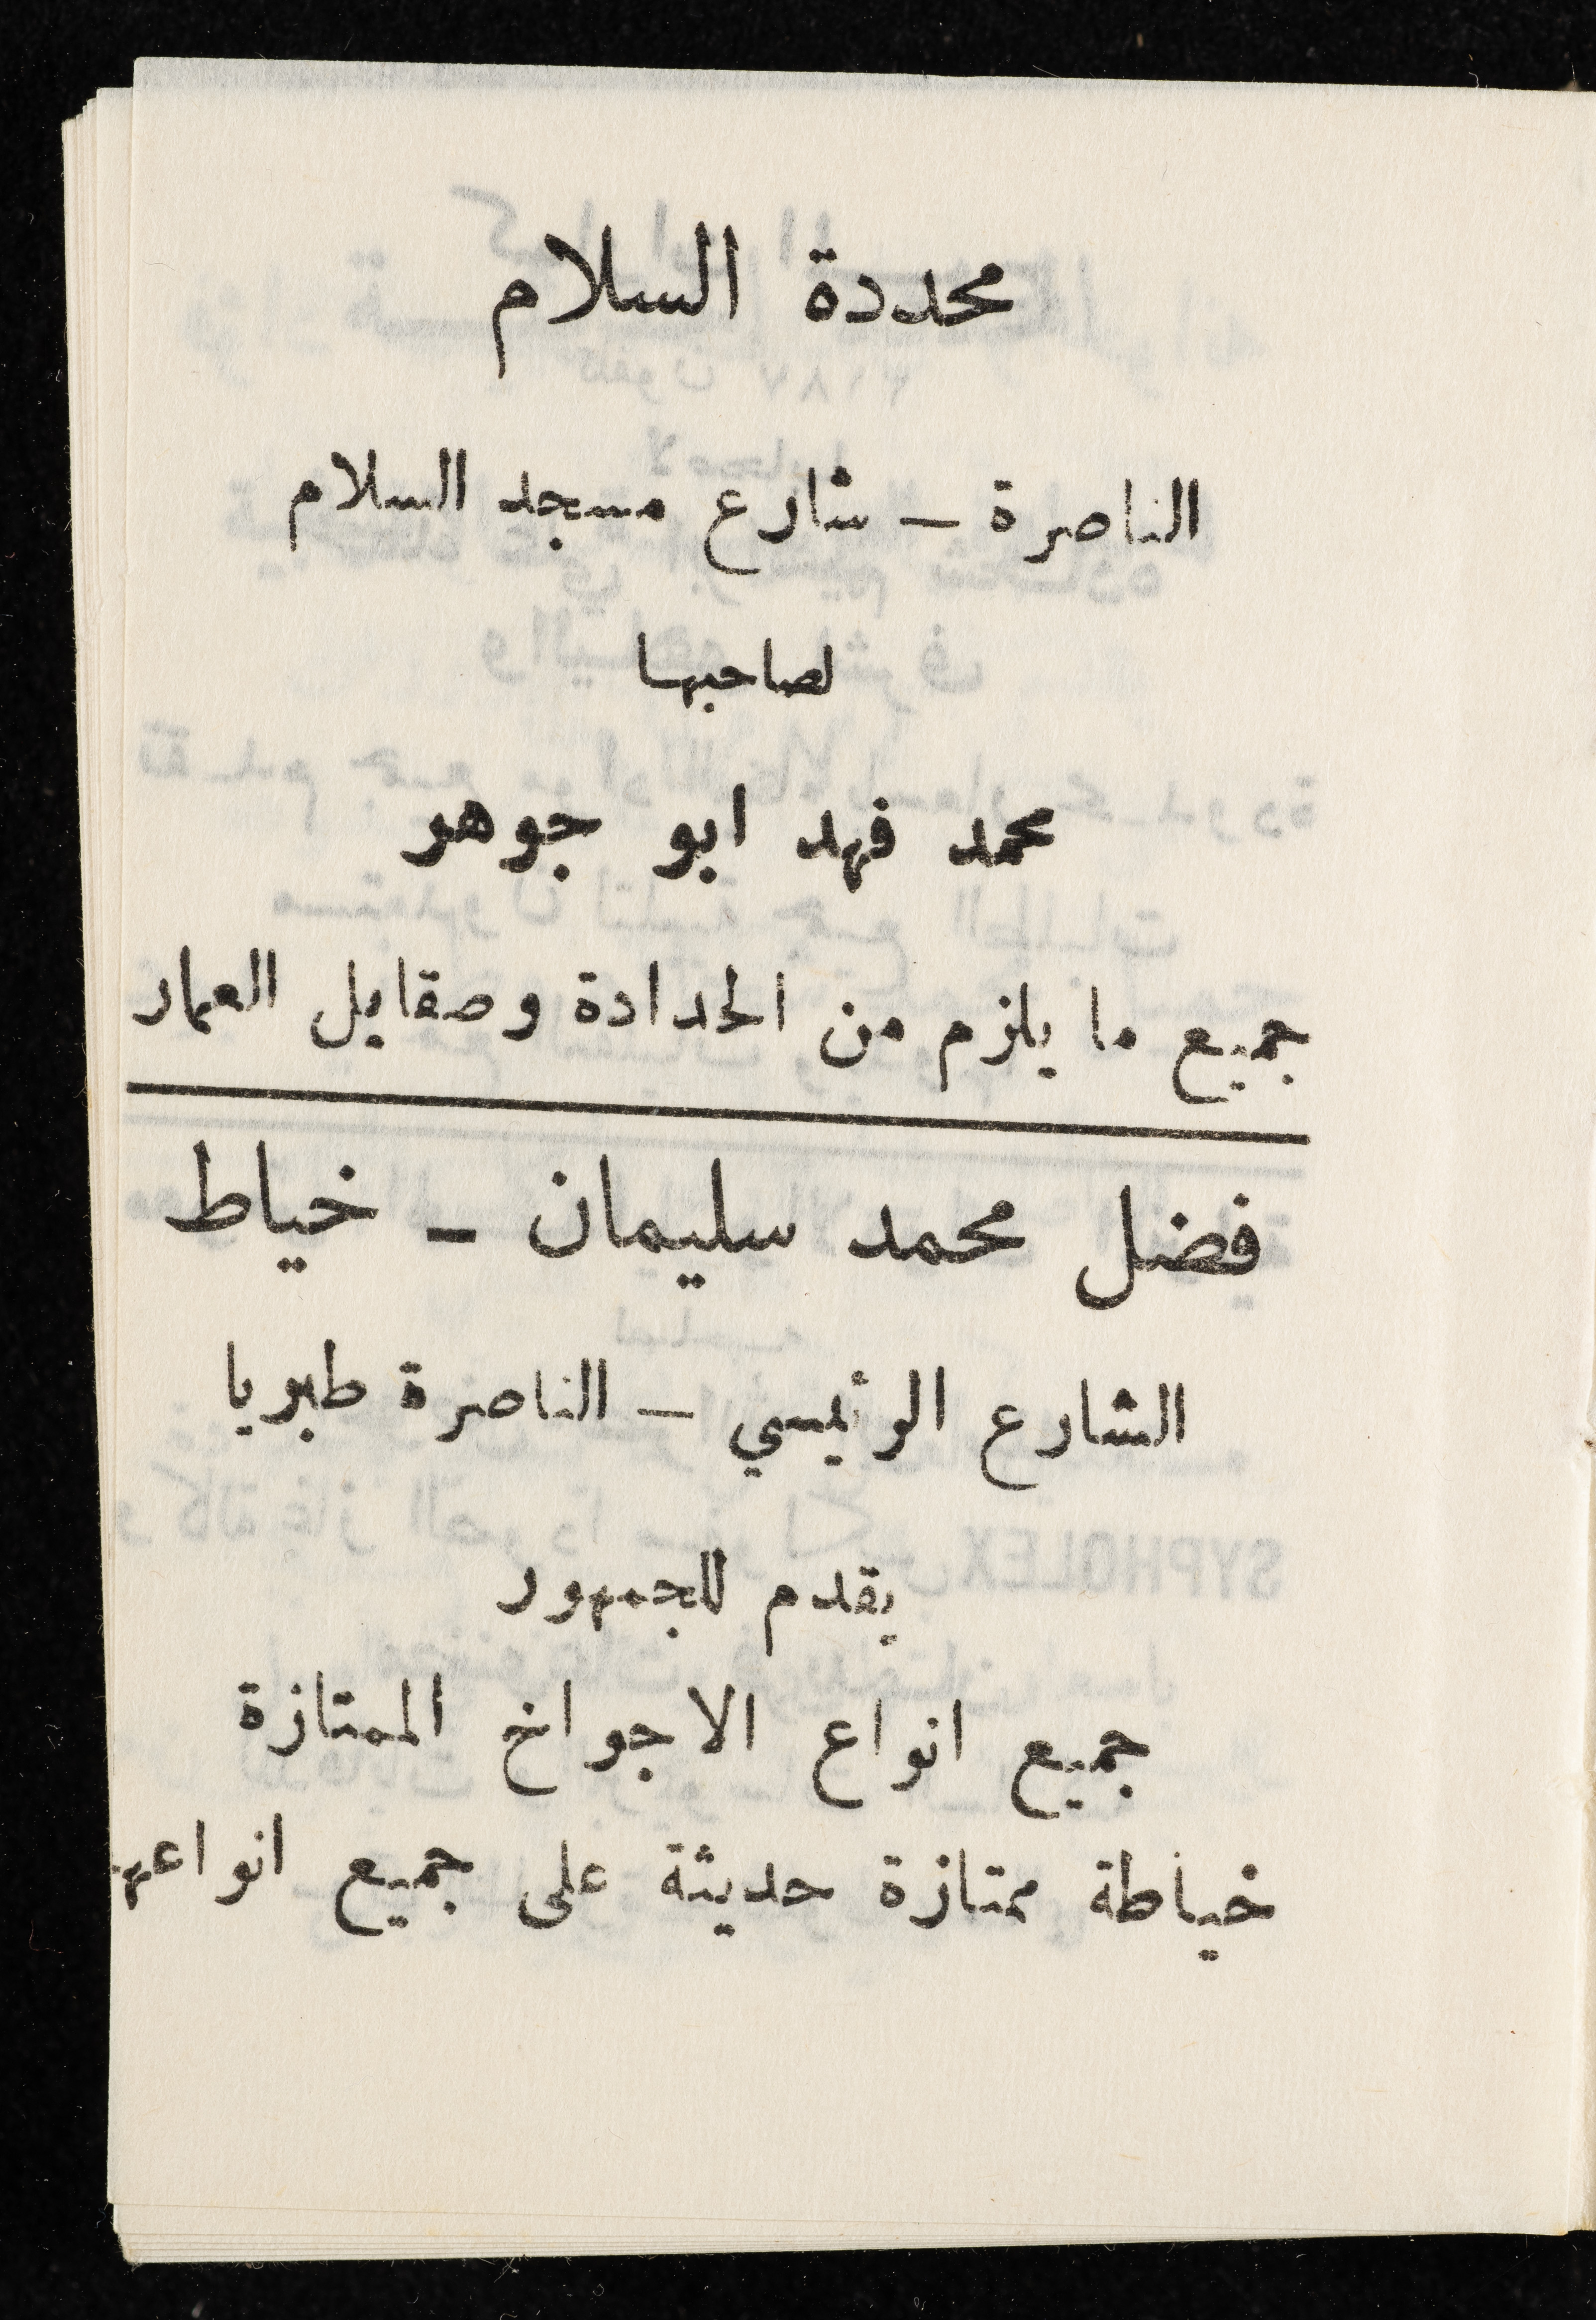 محددة السلام
الناصرة - شارع مسجد السلام
لصاحبها
محمد فهد ابو جوهر
جميع ما يلزم من الحدادة وصقايل العمار
فضل محمد سليمان - خياط
الشارع الرئيسي - الناصرة طبريا
يقدم للجمهور
جميع انواع الاجواخ الممتازة
خياطة ممتازة حديثة على جميع انواعها